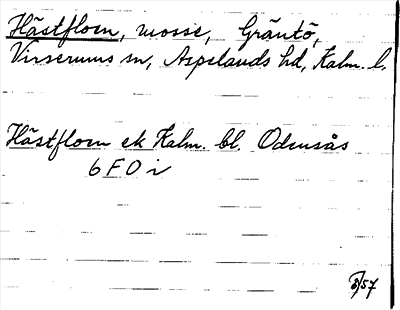 Hästflom, mosse, Gräntö,
Virserums sn, Aspelands hd, Kalm. l.
Hästflom ek Kalm. bl. Odensås
6 F 0 i
57